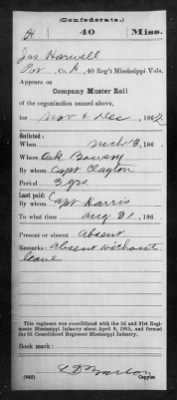 (Confederate.)
H 40 Miss.
Jas Harwell
Pvt, Co. A, 40 Reg't Mississippi Vols.
Appears on
Company Muster Roll
of the organization named above,
for Nov & Dec, 1862
Enlisted:
When 186
Where Oak Bowery
By whom Capt Clayton
Period 3 yrs.
Last paid:
By whom Capt Harris
To what time Aug 31, 186
Present or absent Absent
Remarks: absent without
leave
This regiment was consolidated with the 3d and 31st Regiments
Mississippi Infantry about April 9, 1865, and formed
the 3d Consolidated Regiment Mississippi Infantry.
Book mark:
(642) Copyist